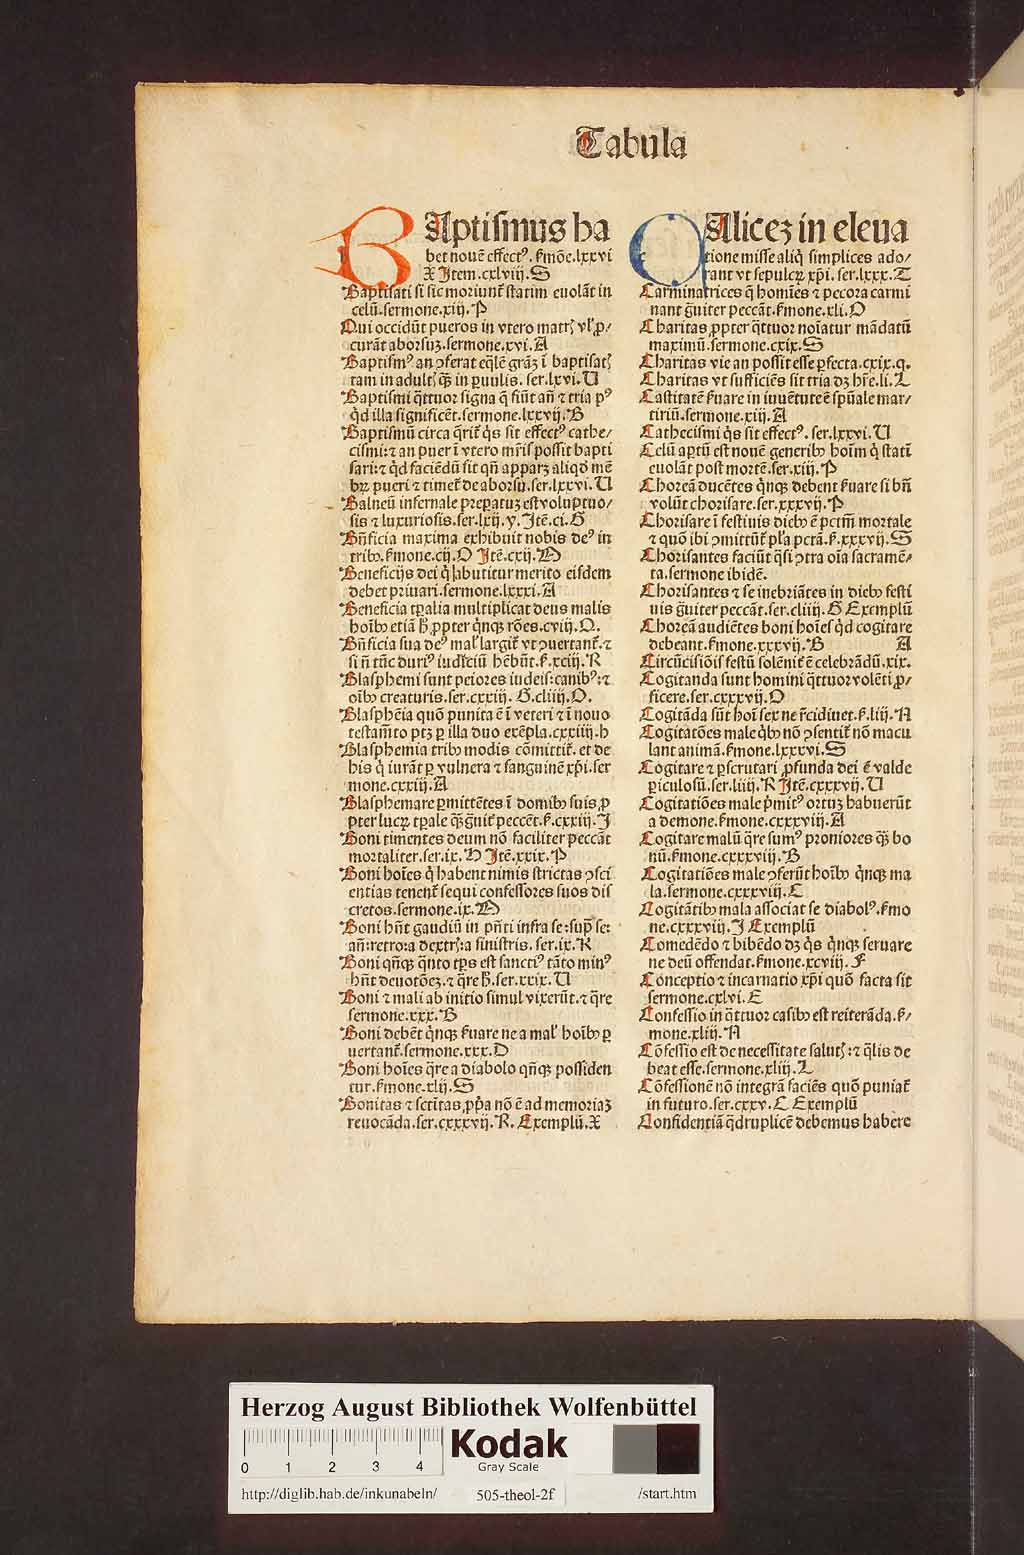 Tabula
BAptiſmus ha
bet nouē effectꝰ. ẜmōe.lxxvi
X Jtem.cxlviij.S
Baptiſati ſi ſic moriunt̄ ſtatim euolāt in
celū.ſermone.xiij.P
Qui occidūt pueros in vtero matrꝭ vl' ꝓ⸗
curāt aborſuꝫ.ſermone.xvi.A
Baptiſmꝰ an ꝯferat eq̄lē grāꝫ ī baptiſatꝭ
tam in adultꝭ qꝫ̄ in ꝑuulis. ſer.lxvi.U
Baptiſmi q̄ttuor ſigna q̄ fiūt añ ⁊ tria pꝰ
qͥd illa ſignificēt.ſermone.lxxvij.B
Baptiſmū circa q̄rit̄ qͥs ſit effectꝰ cathe⸗
ciſmi:⁊ an puer ī vtero mr̄is poſſit bapti
ſari:⁊ qͥd faciēdū ſit qñ apparꝫ aliqͦd mē
bꝝ pueri ⁊ timet̄ de aborſu.ſer.lxxvi.U
Balneū infernale preparatuꝫ eſt voluptuo⸗
ſis ⁊ luxurioſis.ſer.lxij.y.Jtē.ci.G
Bñficia maxima exhibuit nobis deꝰ in
tribꝰ.ẜmone.cij.O Jtē.cxij.N
Beneficijs dei qͥ abutitur merito eiſdem
debet priuari.ſermone.lxxxi.A
Beneficia tꝑalia multiplicat deus malis
hoībꝰ etiā h̄ ꝓpter qͥnqꝫ rōes.cviij.Q.
Bñficia ſua deꝰ mal' largit̄ vt ꝯuertant̄.⁊
ſi ñ tūc duriꝰ iudiciū hēbūt.ẜ.xciij.R
Blaſphemi ſunt peiores iudeis:canibꝰ:⁊
oībꝰ creaturis.ſer.cxxiij. G.cliiij.O.
Blaſphēia quō punita ē ī veteri ⁊ ī nouo
teſtam̄to ptꝫ ꝑ illa duo exēpla.cxxiiij.h
Blaſphemia tribꝰ modis cōmittit̄. et de
his qͥ iurāt ꝑ vulnera ⁊ ſanguinē xp̄i.ſer
mone.cxxiij.A
Blaſphemare ꝑmittētes ī domibꝰ ſuis ꝓ
pter lucꝝ tꝑale qꝫ̄ g̈uit̄ peccēt.ẜ.cxxiij.J
Boni timentes deum nō faciliter peccāt
mortaliter.ſer.ix.H Jtē.xxix.P
Boni hoīes qͥ habent nimis ſtrictas ꝯſci
entias tenent̄ ſequi confeſſores ſuos diſ
cretos.ſermone.ix.N
Boni hñt gaudiū in pñti infra ſe:ſupͣ ſe:
añ:retro:a dextrꝭ:a ſiniſtris. ſer.ix.R
Boni qñqꝫ qͣnto tꝑs eſt ſanctiꝰ tāto minꝰ
hñt deuotōeꝫ.⁊ q̄re h̄.ſer.xxix.U
Boni ⁊ mali ab initio ſimul vixerūt.⁊ q̄re
ſermone.xxx.B
Boni debēt qͥnqꝫ ẜuare ne a mal' hoībꝰ ꝑ
uertant̄.ſermone.xxx.D
Boni hoīes q̄re a diabolo qñqꝫ poſſiden
tur.ẜmone.xlij.S
Bonitas ⁊ ſctītas ꝓpͥa nō ē ad memoriaꝫ
reuocāda.ſer.cxxxvij.R. Exemplū.X
CAlicez in eleua
tione miſſe aliqͥ ſimplices ado⸗
rant vt ſepulcꝝ xp̄i. ſer.lxxx.T
Carminatrices q̄ homīes ⁊ pecora carmi
nant g̈uiter peccāt.ẜmone.xli.O
Charitas ꝓpter q̄ttuor noīatur mādatū
maximū.ſermone.cxix.S
Charitas vie an poſſit eſſe ꝑfecta.cxix.q.
Charitas vt ſufficiēs ſit tria dꝫ hr̄e.li.L
Caſtitatē ẜuare in iuuētute ē ſpūale mar⸗
tiriū.ſermone.xiij.A
Catheciſmi qͥs ſit effectꝰ. ſer.lxxvi.U
Celū aꝑtū eſt nouē generibꝰ hoīm qͥ ſtatī
euolāt poſt mortē.ſer.xiij.P
Choreā ducētes qͥnqꝫ debent ẜuare ſi bñ
volūt choriſare.ſer.xxxvij.P
Choriſare ī feſtiuis diebꝰ ē pctm̄ mortale
⁊ quō ibi ꝯmittūt̄ pl'a pctā.ẜ.xxxvij.S
Choriſantes faciūt qͣſi ꝯtra oīa ſacramē⸗
ta.ſermone ibidē.
Choriſantes ⁊ ſe inebriātes in diebꝰ feſti
uis g̈uiter peccāt.ſer.cliiij.G Exemplū
Choreā audiētes boni hoīes qͥd cogitare A
debeant.ẜmone.xxxvij.B
Circūciſiōis feſtū ſolēnit̄ ē celebrādū.xix.
Cogitanda ſunt homini q̄ttuor volēti ꝓ⸗
ficere.ſer.cxxxvij.O
Cogitāda ſūt hoī ſex ne r̄cidiuet.ẜ.liij.N
Cogitatōes male qͥbꝰ nō ꝯſentit̄ nō macu
lant animā.ẜmone.lxxxvi.S
Cogitare ⁊ ꝑſcrutari ꝓfunda dei ē valde
ꝑiculoſū.ſer.liiij.R Jtē.cxxxvij.U
Cogitatiōes male pͥmitꝰ ortuꝫ habuerūt
a demone.ẜmone.cxxxviij.A
Cogitare malū q̄re ſumꝰ proniores qꝫ̄ bo
nū.ẜmone.cxxxviij.B
Cogitatiōes male ꝯferūt hoībꝰ qͥnqꝫ ma
la.ſermone.cxxxviij.C
Cogitātibꝰ mala aſſociat ſe diabolꝰ.ẜmo
ne.cxxxviij.J Exemplū
Comedēdo ⁊ bibēdo dꝫ qͥs qͥnqꝫ ſeruare
ne deū offendat.ẜmone.xcviij.F
Conceptio ⁊ incarnatio xp̄i quō facta ſit
ſermone.cxlvi.E
Confeſſio in q̄ttuor caſibꝰ eſt reiterāda.ẜ⸗
mone.xliij.N
Cōfeſſio eſt de neceſſitate ſalutꝭ:⁊ q̄lis de
beat eſſe.ſermone.xliij.L
Cōfeſſionē nō integrā faciēs quō puniat̄
in futuro.ſer.cxxv.C Exemplū
Confidentiā q̄druplicē debemus habere
Herzog August Bibliothek Wolfenbüttel
0 1 2 3 4
Kodak
Gray Scale
http://diglib.hab.de/inkunabeln/ 505-theol-2f /start.htm